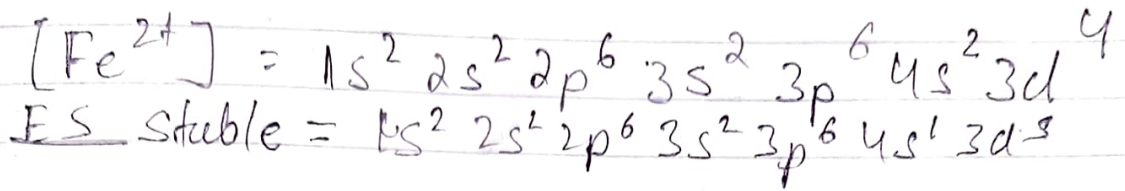 [Fe²⁺] = 1s² 2s² 2p⁶ 3s² 3p⁶ 4s² 3d⁴
ES stable = 1s² 2s² 2p⁶ 3s² 3p⁶ 4s¹ 3d⁵